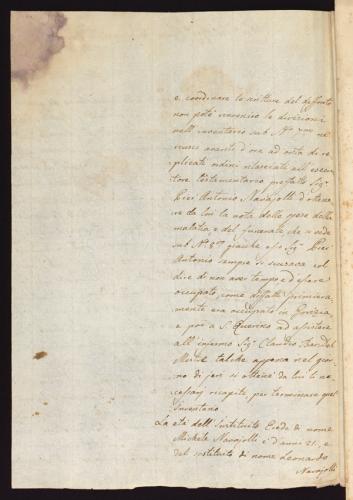 e coordinare le scritture del defonto
non poté rinvenire le divisioni
nell'inventario sub Nº
riuscì avanti d'ora ad onta di re
plicati ordini rilasciati all'esecu
tore testamentario prefatto Sigʳ
Pier Antonio Navajolli d'ottene
re da lui la nota delle spese della
malatia, e del funerale, che si vede
sub Nº 8 giacchè esso Sigʳ Pier
Antonio sempre si scusava col
dire di non aver tempo, e d'essere
occupato, come diffatti primiera
mente era occupato in Gorizia,
e poi a S. Quirino ad assistere
all'infermo Sigʳ Claudio
talchè appena nel gior
no di jeri si ottenè da lui li ne
cessarj ricapiti, per terminare quest'
Inventario.
La età dell'Instituito Erede di nome
Michele Navajolli è d'anni 21, e
del sostituito di nome Leonardo
Navajolli